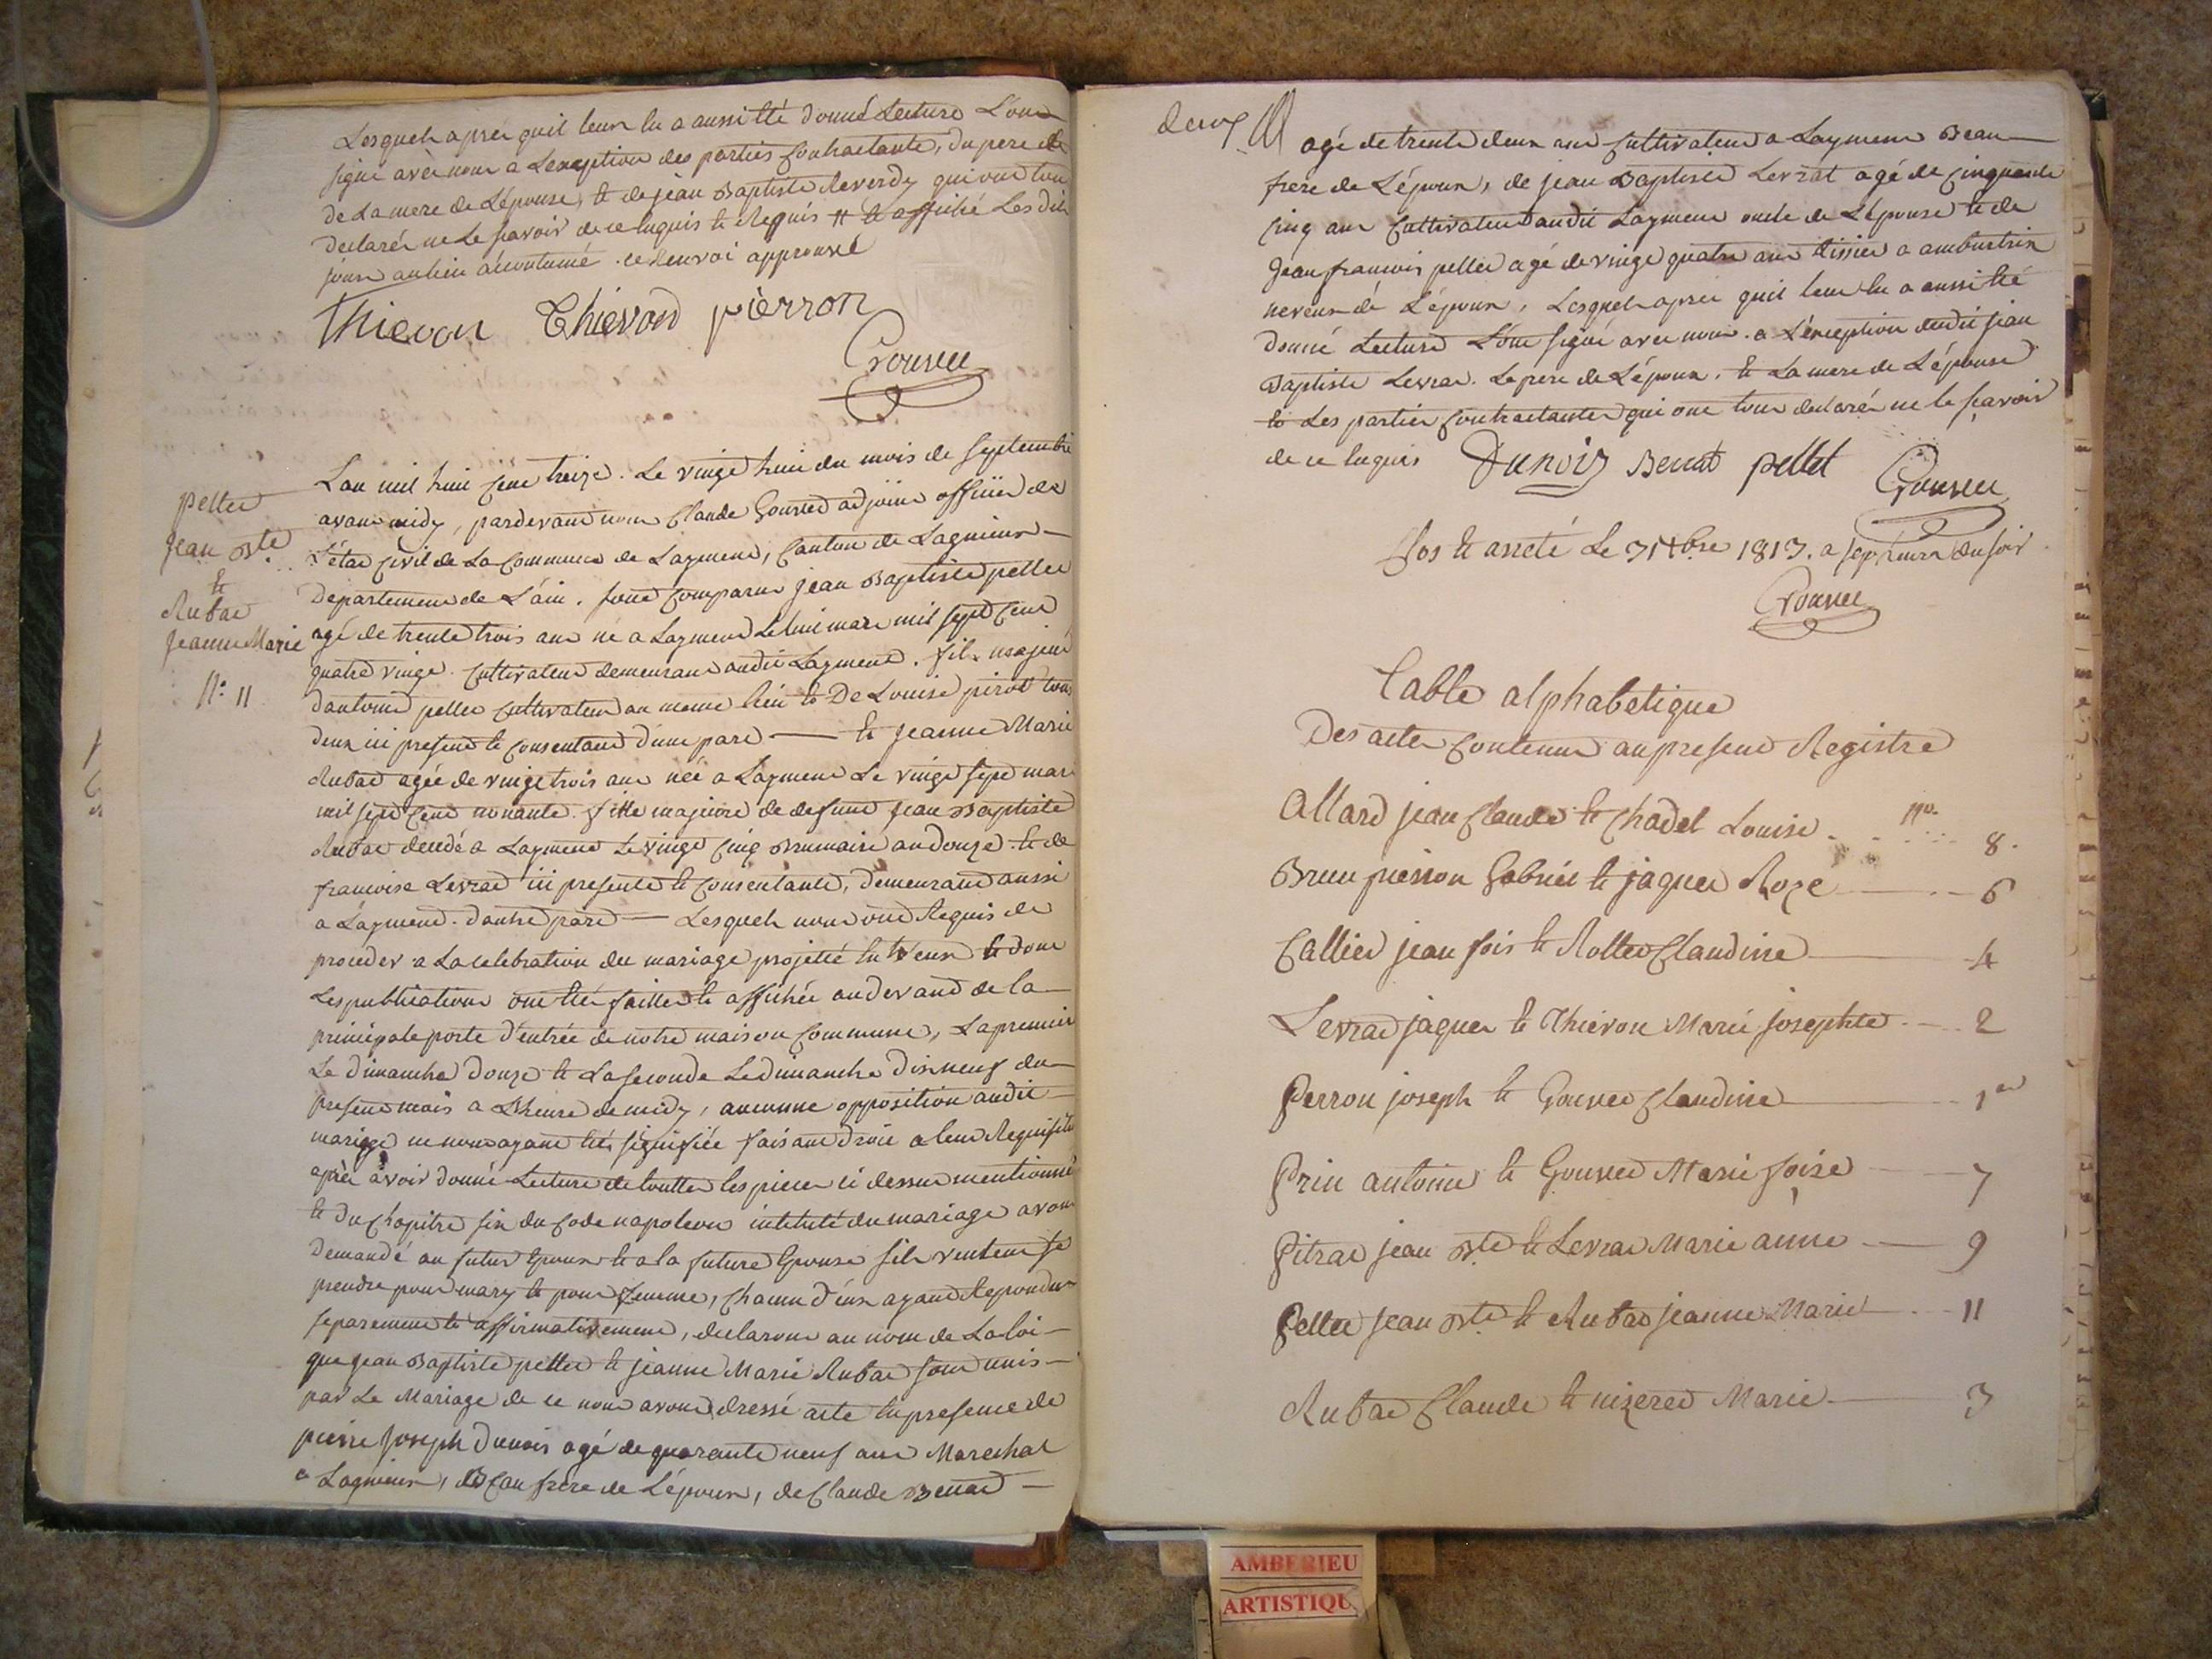 Lesquels après quil leur lu a aussi été donné Lecture L'ont
signé avec nous a L'exeption des parties Contractante, du pere et
de La mere de L'épouse, et de jean Baptiste Reverdy qui ont tous
declarés ne Le savoir de ce enquis et Requis # et affiché Les dits
jours au lieu acoutumé . ce Renvoi approuvé
Thievon Thievond pierron
Gouvet
pellet
jean Bte
et
Rubat
jeanne Marie
N° 11
L'an mil huit Cent treize . Le vingt huit du mois de Septembre
avant midy, pardevant nous Claude Gouvet adjoint officier de
L'état Civil de La Commune de Laymont, Canton de Lagnieux
Departement de L'ain . sont Comparus jean Baptiste pellet
agé de trente trois ans né a Laymont Le huit mars mil sept Cent
quatre vingt . Cultivateur demeurant audit Laymont . fils majeur
d'antoine pellet Cultivateur au meme lieu et De Louise pirot tous
deux ici present et Consentant d'une part — et jeanne Marie
Rubat agée de vingt trois ans née a Laymont Le vingt sept mars
mil sept Cent nonante . fille majeure de defunt jean Baptiste
Rubat decedé a Laymont Le vingt Cinq Brumaire an douze . et de
francoise Levrat ici presente et Consentante, demeurant aussi
a Laymont . d'autre part — Lesquels nous ont Requis de
proceder a La celebration du mariage projetté entr'eux et dont
Les publications ont été faittes et affichées au devant de la
principale porte d'entrée de notre maison Commune, La premiere
Le dimanche douze et La seconde Le dimanche dix neuf du
present mois a L'heure de midy, aucunne opposition audit
mariage ne nous ayant été signifiée faisant droit a leur Requisition
après avoir donné Lecture de touttes les pieces ci dessus mentionnées
et du Chapitre six du Code napoleon intitulé du mariage avons
Demandé au futur Epoux et a la future Epouse s'ils veulent se
prendre pour mary et pour femme, Chacun d'eux ayant Repondu
separement et affirmativement, declarons au nom de La loi
que jean Baptiste pellet et jeanne Marie Rubat sont unis
par Le Mariage de ce nous avons dressé acte en presence de
pierre Joseph Dunois agé de quarante neuf ans Marechal
a Lagnieux, Beau frere de L'époux, de Claude Benat
deux
agé de trente deux ans Cultivateur a Laymont Beau
frere de L'époux, de jean Baptiste Levrat agé de Cinquante
Cinq ans Cultivateur audit Laymont oncle de L'épouse et de
jean francois pellet agé de vingt quatre ans tissier a ambutrix
neveux de L'époux, Lesquels après quil leur lu a aussi été
donné Lecture L'ont signé avec nous . a L'exception dudit jean
Baptiste Levrat . Le pere de L'époux . et La mere de L'épouse
et Les parties Contractantes qui ont tous declarés ne le sçavoir
de ce enquis Dunoix Benat pellet
Gouvet
Clos et areté Le 31 Xbre 1813 . a sept heures du soir .
Gouvet
Table alphabetique
Des actes Contenus au present Registre
Allard jean Claude et Chadel Louise . . N°. 8.
Brun pierron Gabriel et jaquet Roze 6
Callier jean fois et Rollet Claudine 4
Levrat jaques et Thievon Marie josephte 2
Perron joseph et Gouvet Claudine 1er
Prin antoine et Gouvet Marie foise 7
Pitrat jean Bte et Levrat Marie anne 9
Pellet jean Bte et Rubat jeanne Marie 11
Rubat Claude et nizeret Marie 3
AMBERIEU
ARTISTIQU